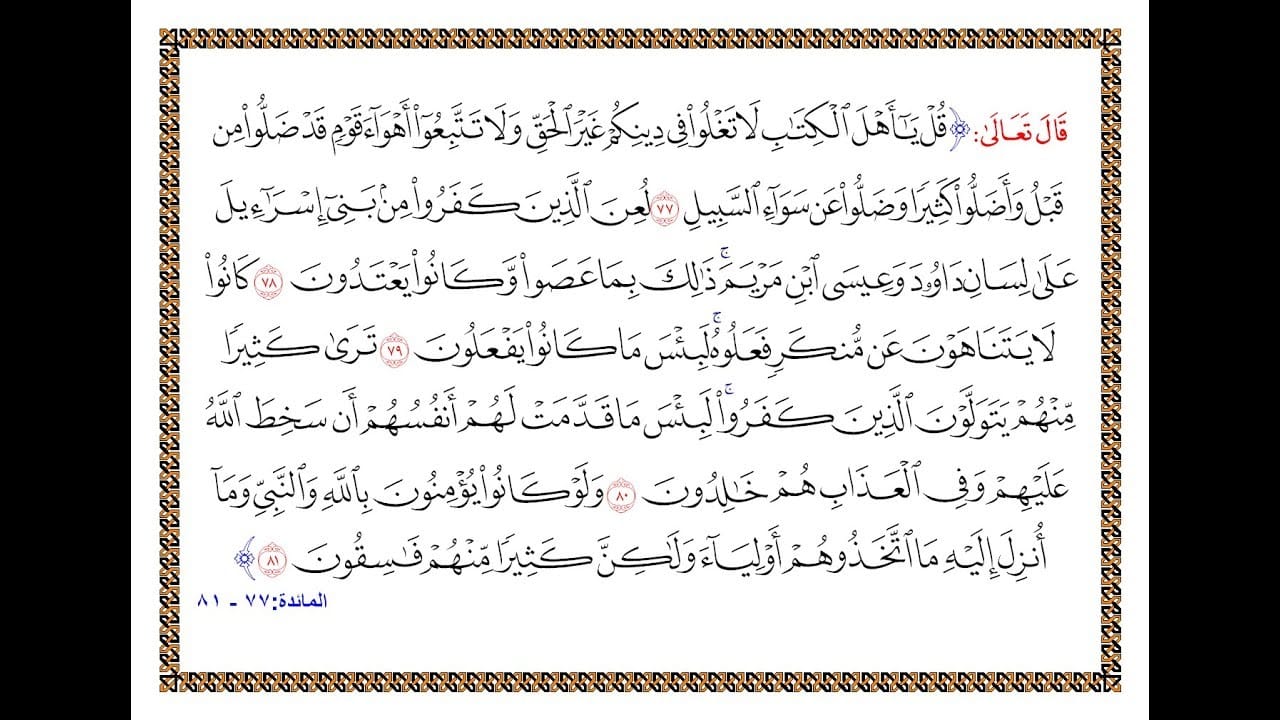 قَالَ تَعَالَىٰ: ﴿ قُلْ يَـٰٓأَهْلَ ٱلْكِتَـٰبِ لَا تَغْلُوا۟ فِى دِينِكُمْ غَيْرَ ٱلْحَقِّ وَلَا تَتَّبِعُوٓا۟ أَهْوَآءَ قَوْمٍ قَدْ ضَلُّوا۟ مِن
قَبْلُ وَأَضَلُّوا۟ كَثِيرًا وَضَلُّوا۟ عَن سَوَآءِ ٱلسَّبِيلِ ٧٧ لُعِنَ ٱلَّذِينَ كَفَرُوا۟ مِنۢ بَنِىٓ إِسْرَٰٓءِيلَ
عَلَىٰ لِسَانِ دَاوُۥدَ وَعِيسَى ٱبْنِ مَرْيَمَ ۚ ذَٰلِكَ بِمَا عَصَوا۟ وَّكَانُوا۟ يَعْتَدُونَ ٧٨ كَانُوا۟
لَا يَتَنَاهَوْنَ عَن مُّنكَرٍ فَعَلُوهُ ۚ لَبِئْسَ مَا كَانُوا۟ يَفْعَلُونَ ٧٩ تَرَىٰ كَثِيرًا
مِّنْهُمْ يَتَوَلَّوْنَ ٱلَّذِينَ كَفَرُوا۟ ۚ لَبِئْسَ مَا قَدَّمَتْ لَهُمْ أَنفُسُهُمْ أَن سَخِطَ ٱللَّهُ
عَلَيْهِمْ وَفِى ٱلْعَذَابِ هُمْ خَـٰلِدُونَ ٨٠ وَلَوْ كَانُوا۟ يُؤْمِنُونَ بِٱللَّهِ وَٱلنَّبِىِّ وَمَآ
أُنزِلَ إِلَيْهِ مَا ٱتَّخَذُوهُمْ أَوْلِيَآءَ وَلَـٰكِنَّ كَثِيرًا مِّنْهُمْ فَـٰسِقُونَ ٨١ ﴾
المائدة:٧٧ - ٨١